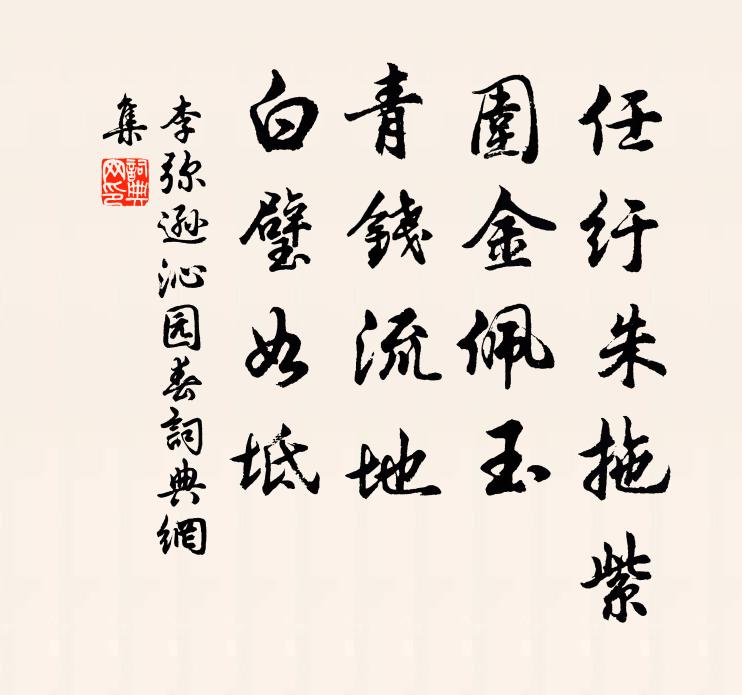 任纡朱拖紫
圍金佩玉
青錢流地
白璧如坻
李弥遜沁园春詞典網
集
詞典網印